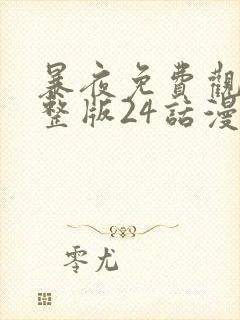 暴夜免費觀
整版24話漫
零尤